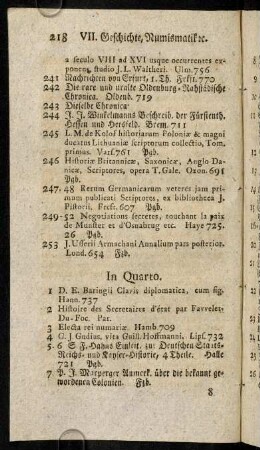 218 VII. Geschichte, Numismatik ꝛc.
a seculo VIII ad XVI usque occurrentes ex-
ponens, studio J. L. Waltheri. Ulm. 756
241 Nachrichten von Erfurt, 1. Th. Frkf. 770
242 Die rare und uralte Oldenburg-Rahstädische
Chronica. Oldenb. 719
243 Dieselbe Chronica
244 J. J. Winkelmanns Beschreib. der Fürstenth.
Hessen und Hersfeld. Brem. 711
245 L. M. de Kolof historiarum Poloniæ & magni
ducatus Lithuaniæ scriptorum collectio, Tom.
primus. Vars. 761 Pgb.
246 Historiæ Britannicæ, Saxonicæ, Anglo Da-
nicæ, Scriptores, opera T. Gale. Oxon. 691
Pgb.
247. 48 Rerum Germanicarum veteres jam pri-
mum publicati Scriptores, ex bibliotheca J.
Pistorii. Frcf. 607 Pgb.
249-52 Negotiations secretes, touchant la paix
de Munster et d'Osnabrug etc. Haye 725.
26 Pgb.
253 J. Usserii Armachani Annalium pars posterior.
Lond. 654 Fzb.
In Quarto.
1 D. E. Baringii Clavis diplomatica, cum fig.
Hann. 737
2 Histoire des Secretaires d'état par Fauvelet-
Du-Foc. Par.
3 Electa rei numariæ. Hamb. 709
4 G. J. Gudiæ, vita Guill. Hoffmanni. Lips. 732
5. 6 S. F. Hahns Einleit. zu Deutschen Staats-
Reichs- und Kayser-Historie, 4 Theile. Halle
721 Pgb.
7 P. J. Marperger Anmerk. über die bekannt ge-
wordenen Colonien. Fzb.
8